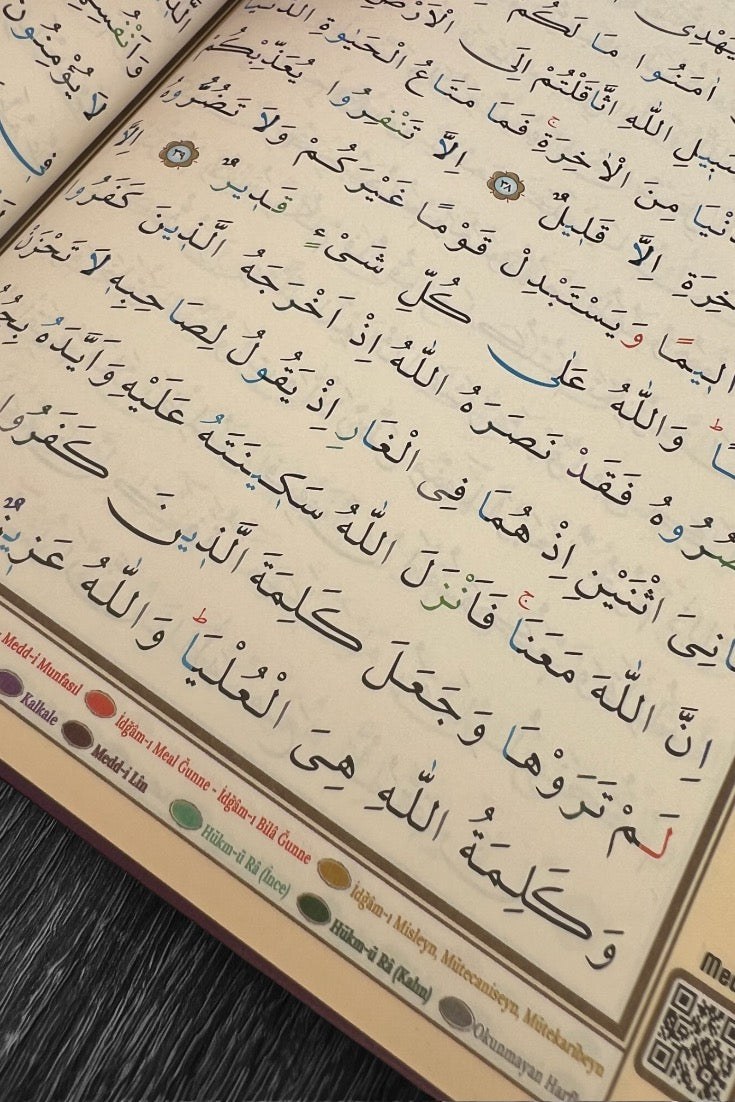 يَهْدِى
اٰمَنُوا مَا لَكُمْ
سَبِيلِ اللّٰهِ اثَّاقَلْتُمْ اِلَى الْاَرْضِ
مِنَ الْاٰخِرَةِۚ فَمَا مَتَاعُ الْحَيٰوةِ الدُّنْيَا
اِلَّا قَلِيلٌ ٣٨ اِلَّا تَنْفِرُوا يُعَذِّبْكُمْ
اَلِيمًا وَيَسْتَبْدِلْ قَوْمًا غَيْرَكُمْ وَلَا تَضُرُّوهُ
وَاللّٰهُ عَلٰى كُلِّ شَىْءٍ قَدِيرٌ ٣٩ اِلَّا
فَقَدْ نَصَرَهُ اللّٰهُ اِذْ اَخْرَجَهُ الَّذِينَ كَفَرُوا
ثَانِىَ اثْنَيْنِ اِذْ هُمَا فِى الْغَارِ اِذْ يَقُولُ لِصَاحِبِهِ لَا تَحْزَنْ
اِنَّ اللّٰهَ مَعَنَاۚ فَاَنْزَلَ اللّٰهُ سَكِينَتَهُ عَلَيْهِ وَاَيَّدَهُ
لَمْ تَرَوْهَا وَجَعَلَ كَلِمَةَ الَّذِينَ كَفَرُوا
وَكَلِمَةُ اللّٰهِ هِىَ الْعُلْيَاۜ وَاللّٰهُ
لَا يُؤْمِنُونَ
Medd-i Munfasıl
İdğâm-ı Meal Ğunne - İdğâm-ı Bilâ Ğunne
İdğâm-ı Misleyn, Mütecaniseyn, Mütekaribeyn
Kalkale
Medd-i Lîn
Hükm-ü Râ (İnce)
Hükm-ü Râ (Kalın)
Okunmayan